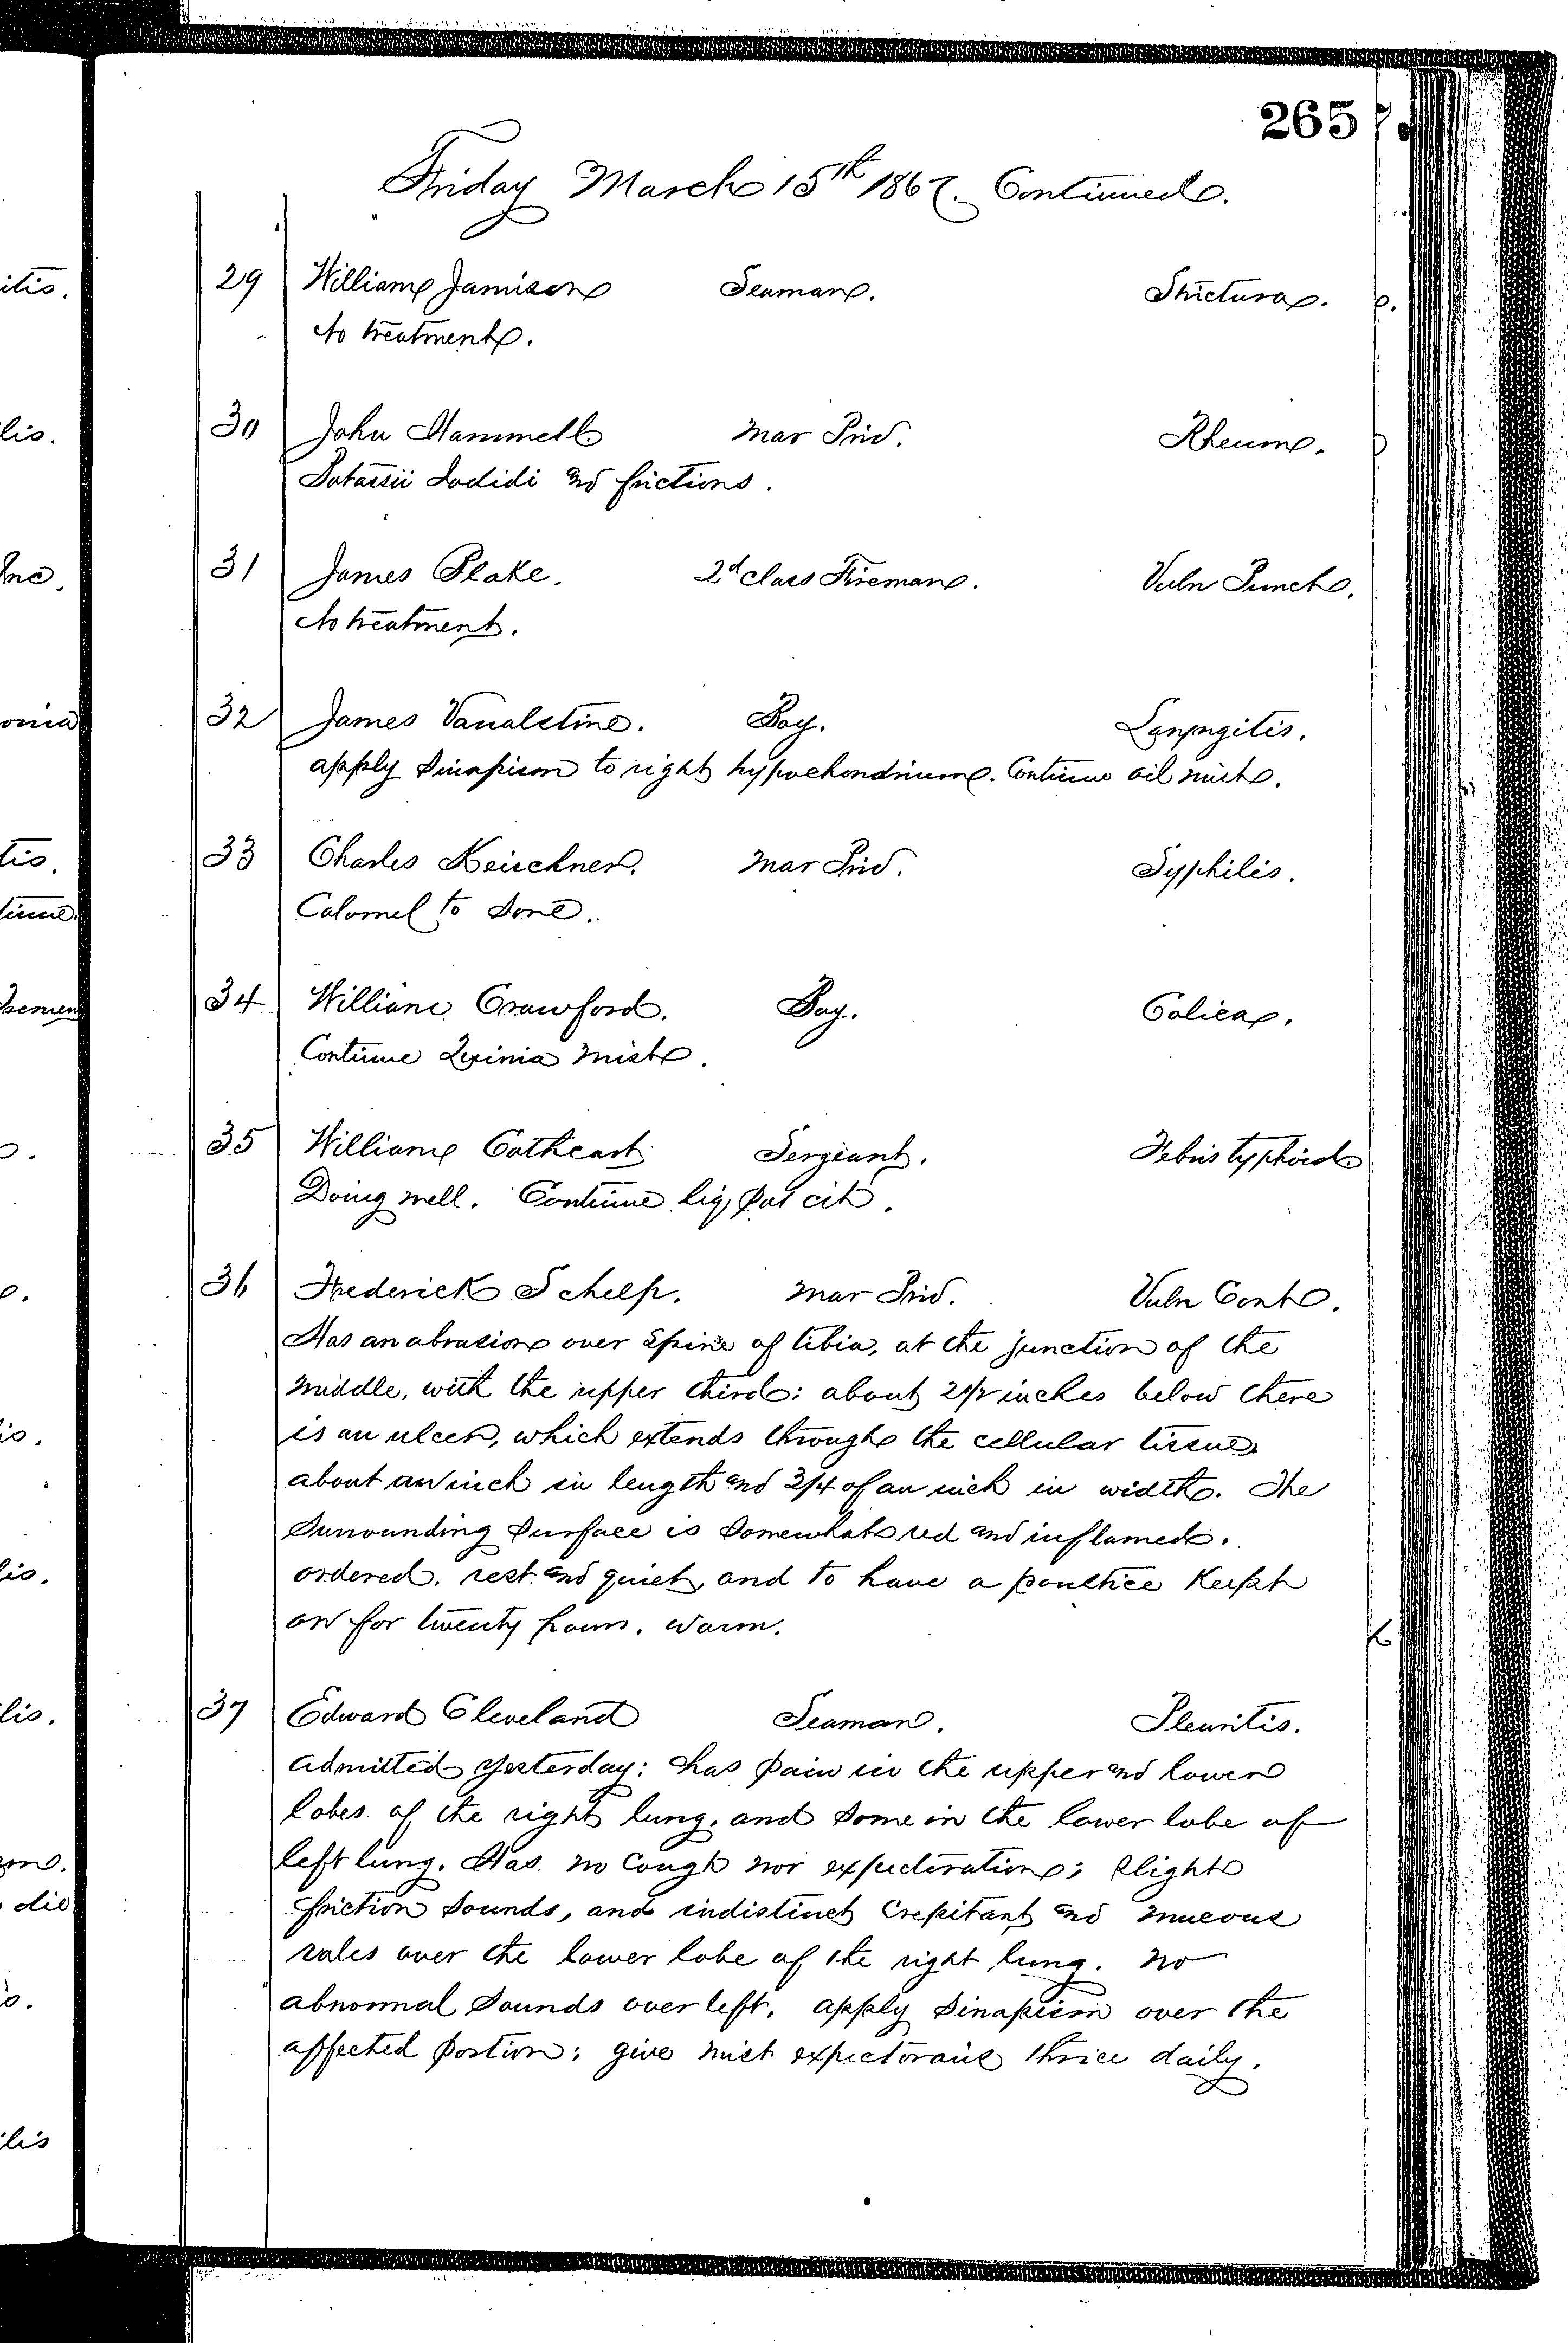 265
Friday March 15th 1867. Continued.
29 William Jamison Seaman. Strictura.
No treatment.
30 John Hammell Mar Priv. Rheum.
Potassii Iodidi and frictions.
31 James Blake. 2d class Fireman. Vuln Punct.
No treatment.
32 James Vanalstine. Boy. Laryngitis.
apply Sinapism to right hypochondrium. Continue oil mist.
33 Charles Keirchner. Mar Priv. Syphilis.
Calomel to sore.
34 William Crawford. Boy. Colica.
Continue Quinia mist.
35 William Cathcart Sergeant. Febris typhoid
Doing well. Continue liq pot cit.
36 Frederick Schelp. Mar Priv. Vuln Cont.
Has an abrasion over spine of tibia, at the junction of the
middle, with the upper third: about 2 1/2 inches below there
is an ulcer, which extends through the cellular tissue
about an inch in length and 3/4 of an inch in width. The
surrounding surface is somewhat red and inflamed.
ordered. rest and quiet, and to have a poultice kept
on for twenty hours. warm.
37 Edward Cleveland Seaman. Pleuritis.
admitted yesterday: has pain in the upper and lower
lobes of the right lung, and some in the lower lobe of
left lung. Has no cough nor expectoration; slight
friction sounds, and indistinct crepitant and mucous
rales over the lower lobe of the right lung. No
abnormal sounds over left. apply sinapism over the
affected portion: give mist expectorans thrice daily.